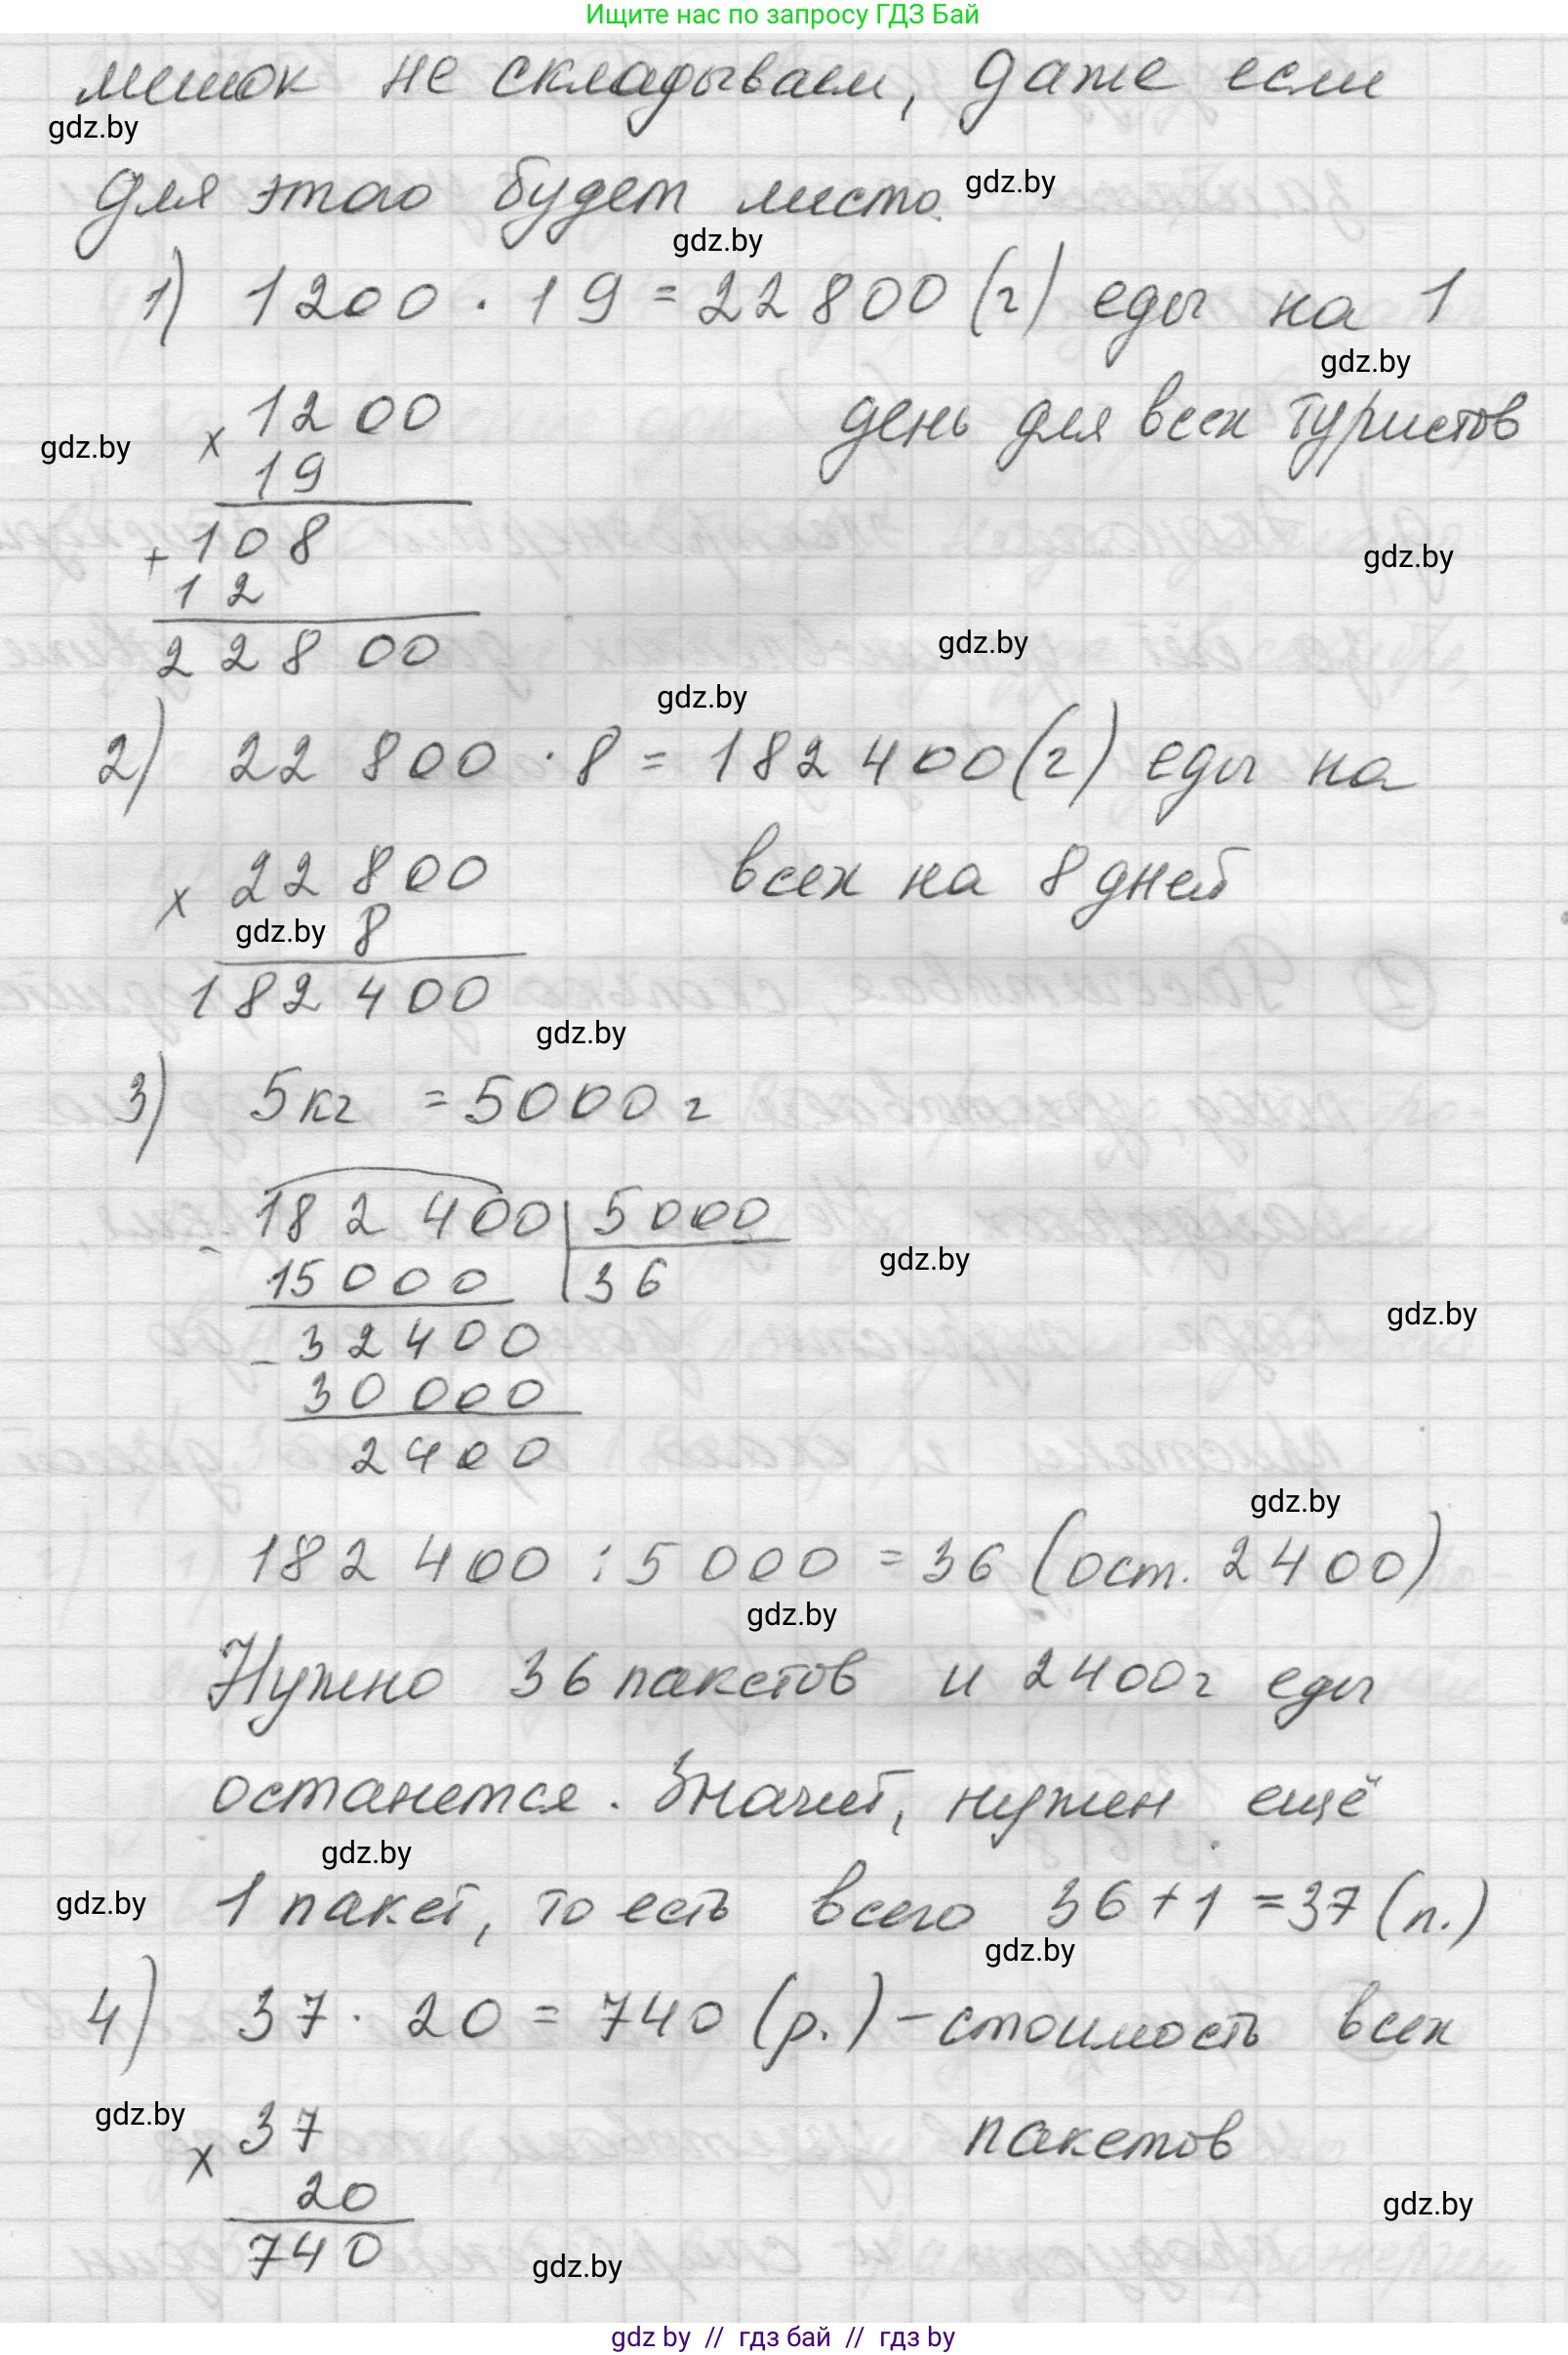 Ищите нас по запросу ГДЗ Бай
мешок не складываем, даже если
gdz.by
для этого будет место.
gdz.by
gdz.by
1) 1200 · 19 = 22 800 (г) еды на 1
gdz.by
× 1200
день для всех туристов
gdz.by
19
+ 108
gdz.by
12
22 800
gdz.by
gdz.by
2) 22 800 · 8 = 182 400 (г) еды на
× 22 800
всех на 8 дней
gdz.by
8
182 400
gdz.by
3) 5 кг = 5000 г
- 182 400 | 5000
gdz.by
15000 | 36
gdz.by
- 32400
30000
2400
gdz.by
182 400 : 5 000 = 36 (ост. 2400)
gdz.by
Нужно 36 пакетов и 2400 г еды
останется. Значит, нужен ещё
gdz.by
gdz.by
1 пакет, то есть всего 36 + 1 = 37 (п.)
gdz.by
4) 37 · 20 = 740 (р.) – стоимость всех
gdz.by
× 37
пакетов
20
gdz.by
740
gdz.by
gdz by // гдз бай // гдз by